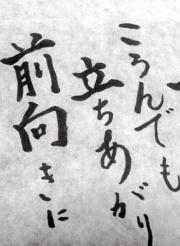 ころんでも
立ちあがり
前向きに